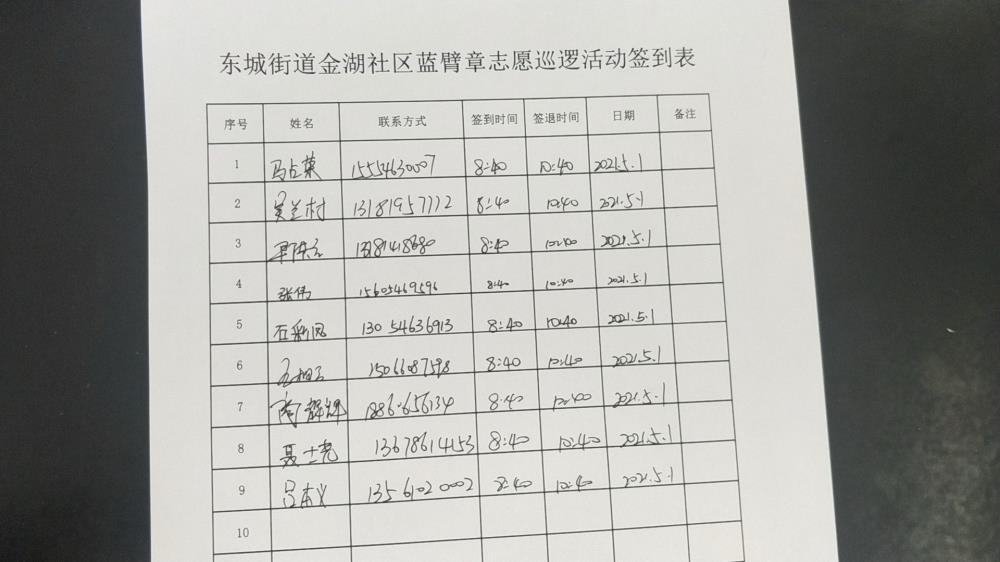 东城街道金湖社区蓝臂章志愿巡逻活动签到表
序号 姓名 联系方式 签到时间 签退时间 日期 备注
1 马占菜 15554630007 8:40 10:40 2021.5.1
2 吴兰村 13181957772 8:40 10:40 2021.5.1
3 8:40 10:40 2021.5.1
4 张伟 15605469596 8:40 10:40 2021.5.1
5 石彩凤 13054636913 8:40 10:40 2021.5.1
6 15066087598 8:40 10:40 2021.5.1
7 8:40 10:40 2021.5.1
8 聂士亮 13678614153 8:40 10:40 2021.5.1
9 吕本义 13561020002 8:40 10:40 2021.5.1
10